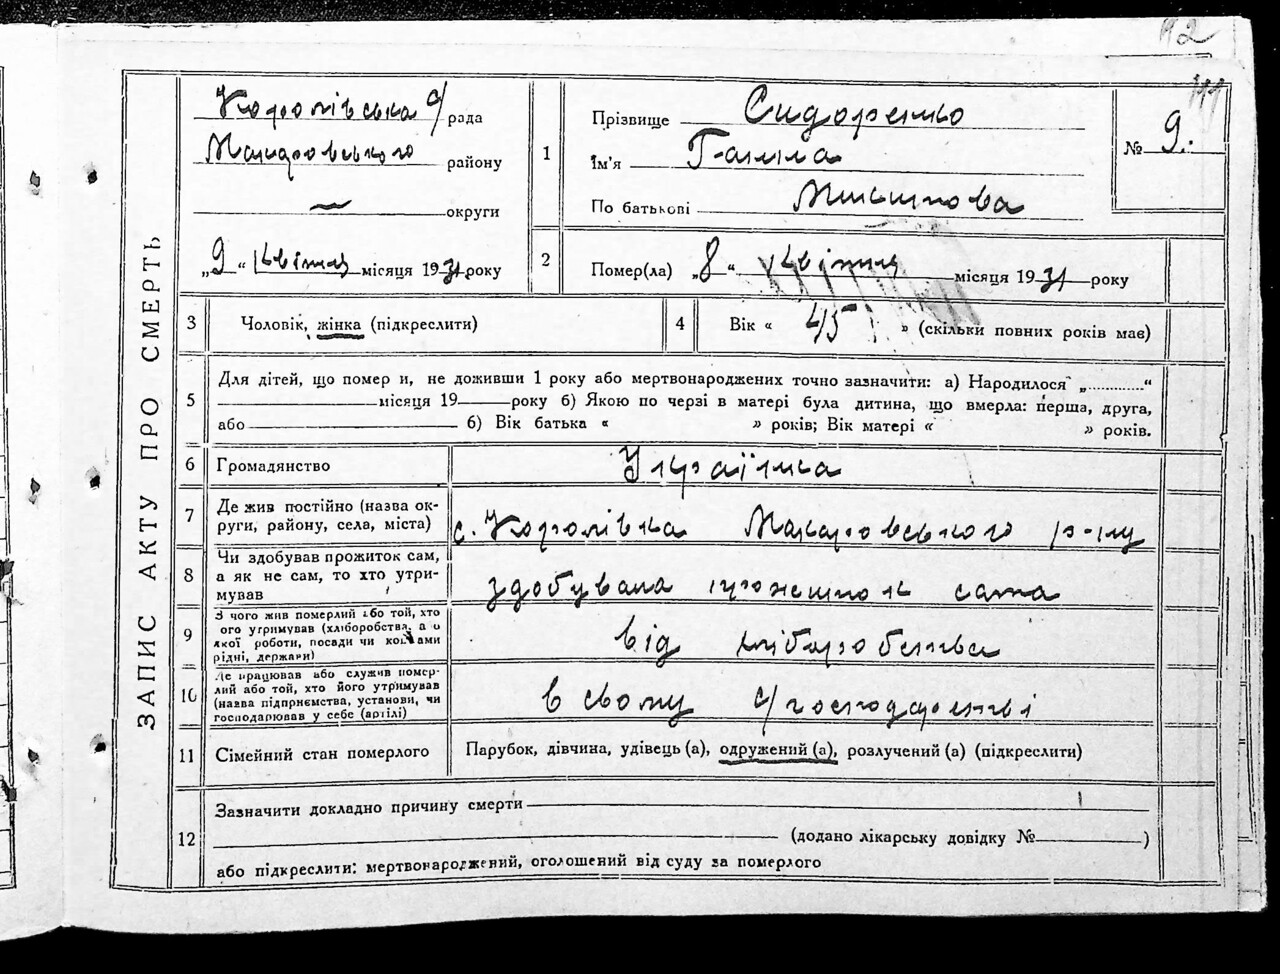 92
ЗАПИС АКТУ ПРО СМЕРТЬ
Королівська с/рада
Макаровського району
— округи
„9“ квітня місяця 1931 року
1
Прізвище Сидоренко
Ім'я Ганна
По батькові
№ 9.
2
Помер(ла) „8“ квітня місяця 1931 року
3 Чоловік, жінка (підкреслити)
4 Вік « 45 » (скільки повних років має)
5
Для дітей, що помер и, не доживши 1 року або мертвонароджених точно зазначити: а) Народилося „............“
місяця 19 року б) Якою по черзі в матері була дитина, що вмерла: перша, друга,
або б) Вік батька « » років; Вік матері « » років.
6 Громадянство Українка
7 Де жив постійно (назва ок-
руги, району, села, міста)
с. Королівка Макаровського р-ну
8 Чи здобував прожиток сам,
а як не сам, то хто утри-
мував
здобувала прожиток сама
9 З чого жив померлий або той, хто
ого утримував (хліборобства, з о
якої роботи, посади чи коштами
рідні, держави)
від хліборобства
10 Де працював або служив помер-
лий або той, хто його утримував
(назва підприємства, установи, чи
господарював у себе (артілі)
в свому с/господарстві
11 Сімейний стан померлого Парубок, дівчина, удівець (а), одружений (а), розлучений (а) (підкреслити)
12
Зазначити докладно причину смерти
(додано лікарську довідку № )
або підкреслити: мертвонароджений, оголошений від суду за померлого